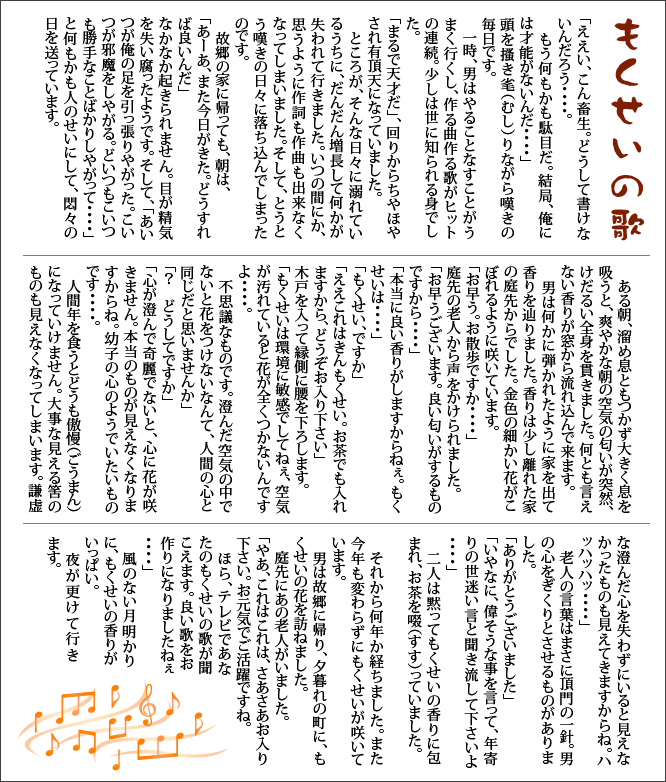 もくせいの歌
「ええい、こん畜生。どうして書けな
いんだろう・・・・。
　もう何もかも駄目だ。結局、俺に
は才能がないんだ・・・・」
頭を掻き毟（むし）りながら嘆きの
毎日です。
　一時、男はやることなすことがう
まく行くし、作る曲作る歌がヒット
の連続。少しは世に知られる身でし
た。
「まるで天才だ」、回りからちやほや
され有頂天になっていました。
　ところが、そんな日々に溺れてい
るうちに、だんだん増長して何かが
失われて行きました。いつの間にか、
思うように作詞も作曲も出来なく
なってしまいました。そして、とうと
う嘆きの日々に落ち込んでしまった
のです。
　故郷の家に帰っても、朝は、
「あーあ、また今日がきた。どうすれ
ば良いんだ」
なかなか起きられません。目が精気
を失い腐ったようです。そして、「あい
つが俺の足を引っ張りやがった。こい
つが邪魔をしやがる。どいつもこいつ
も勝手なことばかりしやがって・・・・」
と何もかも人のせいにして、悶々の
日を送っています。
　ある朝、溜め息ともつかず大きく息を
吸うと、爽やかな朝の空気の匂いが突然、
けだるい全身を貫きました。何とも言え
ない香りが窓から流れ込んで来ます。
　男は何かに弾かれたように家を出て
香りを辿りました。香りは少し離れた家
の庭先からでした。金色の細かい花がこ
ぼれるように咲いています。
「お早う。お散歩ですか・・・・」
庭先の老人から声をかけられました。
「お早うございます。良い匂いがするもの
ですから・・・・」
「本当に良い香りがしますからねぇ。もく
せいは・・・・」
「もくせい、ですか」
「ええこれはきんもくせい。お茶でも入れ
ますから、どうぞお入り下さい」
木戸を入って縁側に腰を下ろします。
「もくせいは環境に敏感でしてねぇ、空気
が汚れていると花が全くつかないんです
よ・・・・。
　不思議なものです。澄んだ空気の中で
ないと花をつけないなんて、人間の心と
同じだと思いませんか」
「？　どうしてですか」
「心が澄んで奇麗でないと、心に花が咲
きません。本当のものが見えなくなりま
すからね。幼子の心のようでいたいもの
です・・・・。
　人間年を食うとどうも傲慢（ごうまん）
になっていけません。大事な見える筈の
ものも見えなくなってしまいます。謙虚
な澄んだ心を失わずにいると見えな
かったものも見えてきますからね。ハ
ッハッハッ・・・・」
　老人の言葉はまさに頂門の一針。男
の心をぎくりとさせるものがありま
した。
「ありがとうございました」
「いやなに、偉そうな事を言って、年寄
りの世迷い言と聞き流して下さいよ
・・・・」
　二人は黙ってもくせいの香りに包
まれ、お茶を啜（すす）っていました。
　それから何年か経ちました。また
今年も変わらずにもくせいが咲いて
います。
　男は故郷に帰り、夕暮れの町に、も
くせいの花を訪ねました。
　庭先にあの老人がいました。
「やあ、これはこれは、さあさあお入り
下さい。お元気でご活躍ですね。
　ほら、テレビであな
たのもくせいの歌が聞
こえます。良い歌をお
作りになりましたねぇ
・・・・」
　風のない月明かり
に、もくせいの香りが
いっぱい。
　夜が更けて行き
ます。